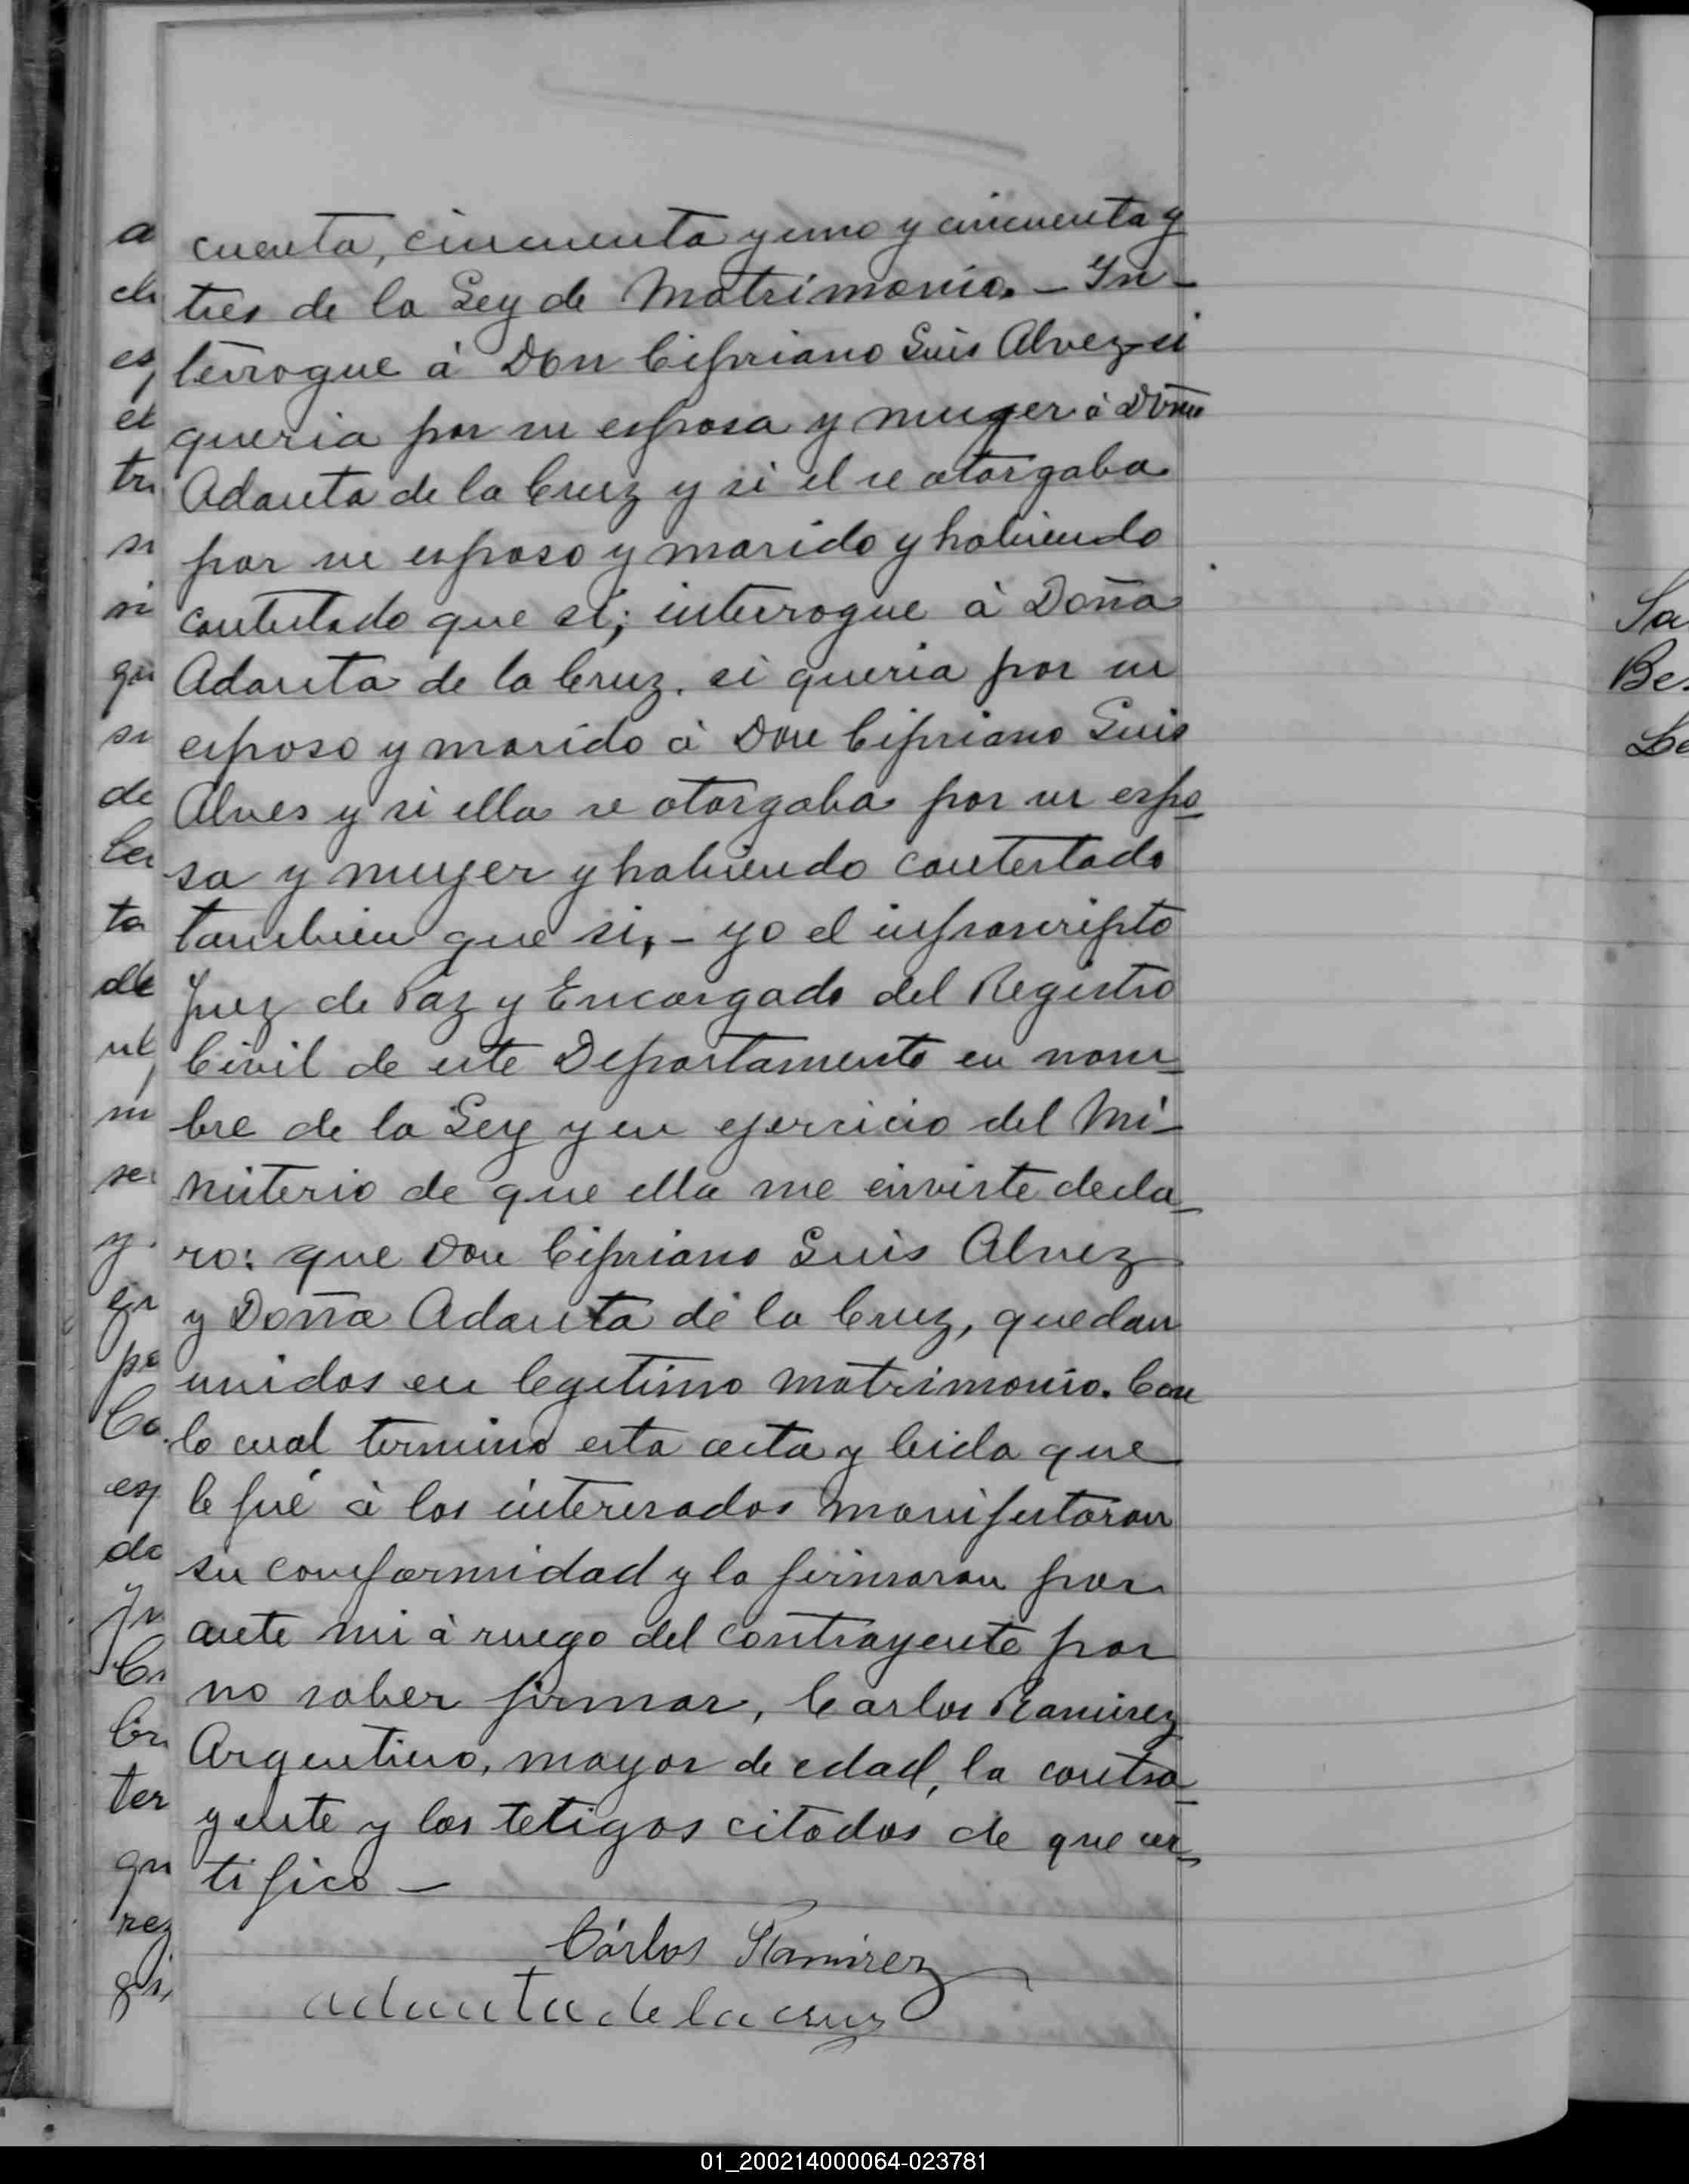 cuenta, cincuenta y uno y cincuenta y
tres de la Ley de Matrimonio. – In-
terrogue á Don Cipriano Luis Alvez si
queria por su esposa y muger á Doña
Adauta de la Cruz y si el se otorgaba
por su esposo y marido y habiendo
contestado que si; interrogue á Doña
Adauta de la Cruz. si queria por su
esposo y marido á Don Cipriano Luis
Alves y si ella se otorgaba por su espo
sa y muyer y habiendo contestado
tambien que si, – yo el infrascripto
Juez de Paz y Encargado del Registro
Civil de este Departamento en nom-
bre de la Ley y en ejercicio del Mi-
nisterio de que ella me enviste decla-
ro: que Don Cipriano Luis Alvez
y Doña Adauta de la Cruz, quedan
unidos en legitimo matrimonio. Con
lo cual termino esta acta y leida que
le fué á los interesados manifestaron
su conformidad y la firmaron por
ante mi á ruego del contrayente por
no saber firmar, Carlos Ramirez
Argentino, mayor de edad, la contra-
yente y los tetigos citados de que cer-
tifico –
Cárlos Ramirez
adauta de la cruz
a
es
tri
si
qu
su
de
ta
de
se
y
po
Co
es
do
ter
qu
rez
gi
Sa
Be
Le
01_200214000064-023781